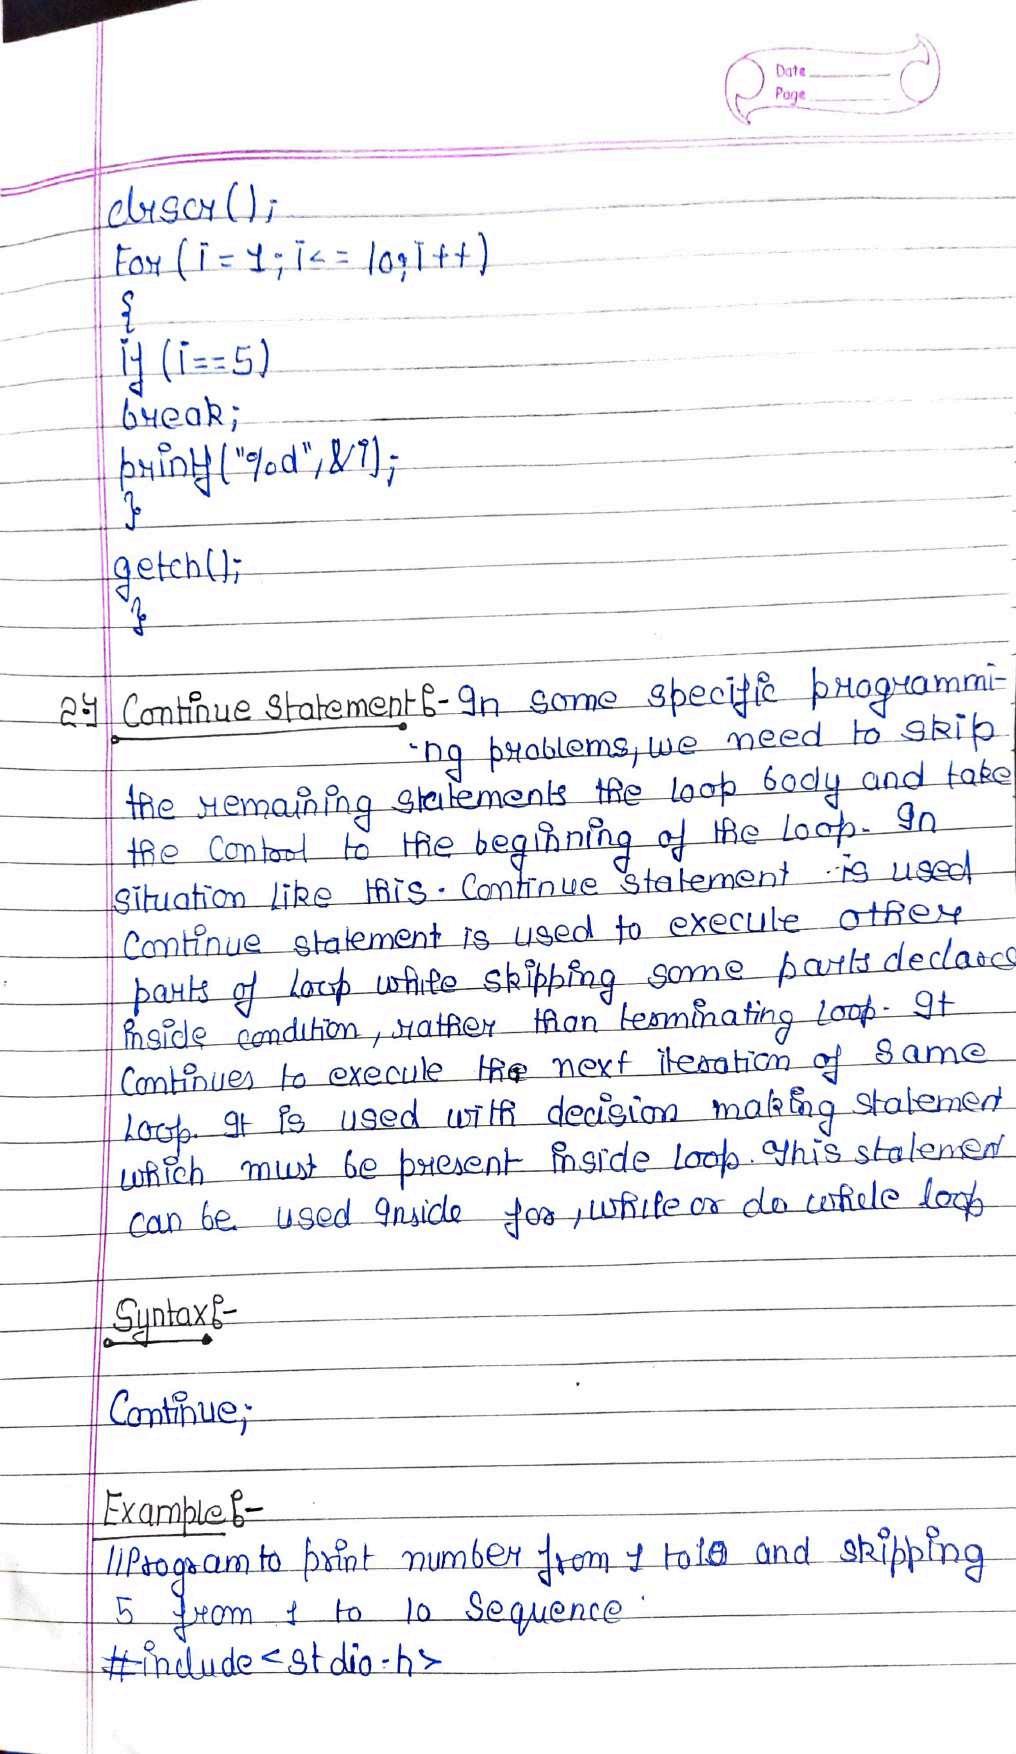 Date
Page
clrscr();
For (i = 1; i<= 10; i++)
{
if (i==5)
break;
printf("%d",&i);
}
getch();
}
2) Continue Statement:- In some specific programmi-
-ng problems, we need to skip
the remaining statements the loop body and take
the Control to the beginning of the loop. In
situation like this. Continue statement is used
Continue statement is used to execute other
parts of loop while skipping some parts declares
inside condition, rather than terminating loop. It
Continues to execute the next iteration of same
loop. It is used with decision making statement
which must be present inside loop. This statement
can be used inside for, while or do while loop
Syntax:-
Continue;
Example:-
//Program to print number from 1 to 10 and skipping
5 from 1 to 10 Sequence.
#include <stdio.h>